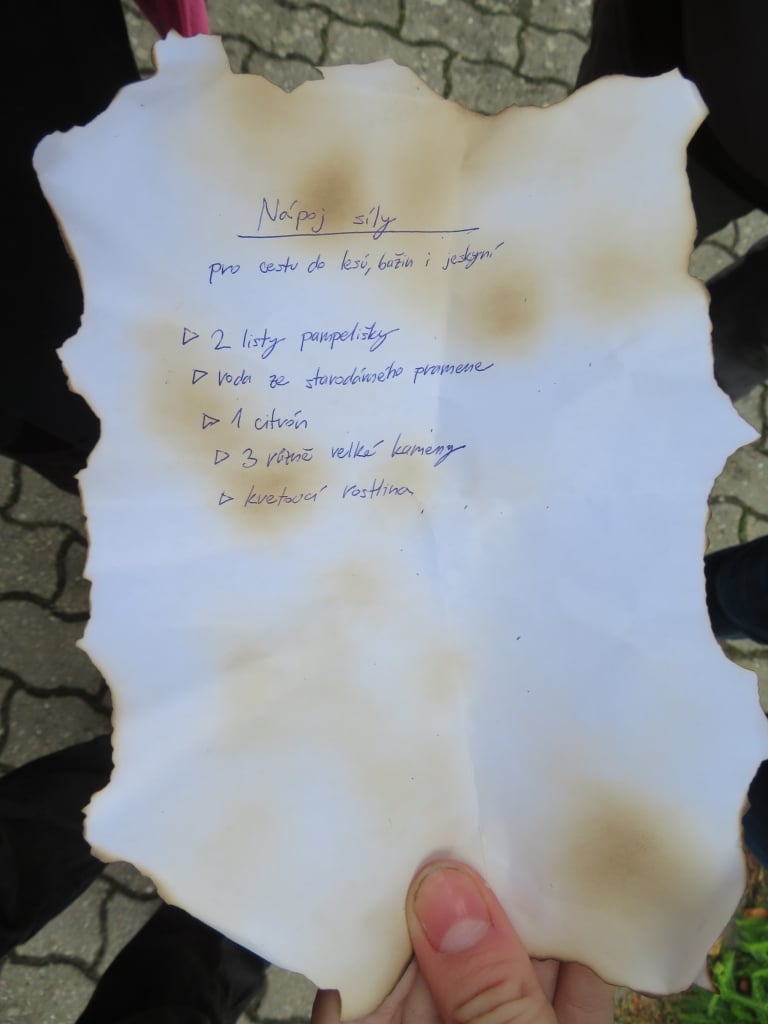 Nápoj síly
pro cestu do lesů, bažin i jeskyní
▷ 2 listy pampelišky
▷ voda ze starodávného pramene
▷ 1 citrón
▷ 3 různě velké kameny
▷ kvetoucí rostlina